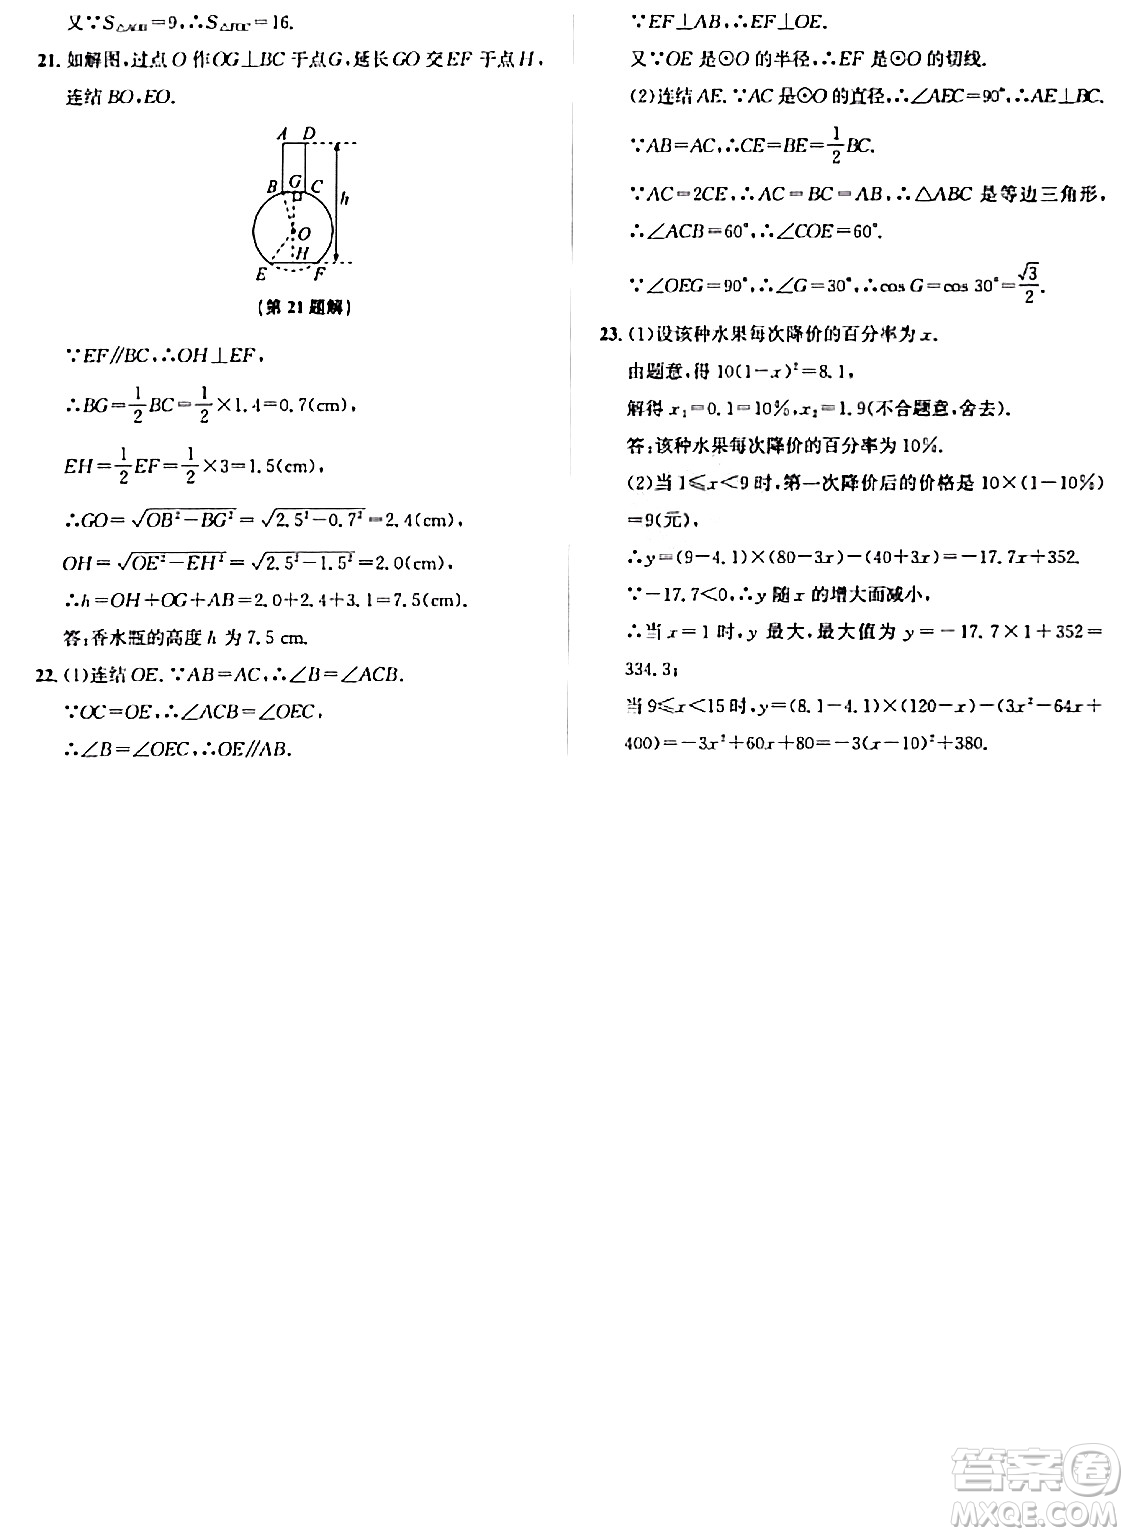 又∵S△AOB=9,∴S△FOC=16.
21. 如解图,过点O作OG⊥BC于点G,延长GO交EF于点H,
连结BO,EO.
A D
B G C
h
O
H
E F
(第21题解)
∵EF∥BC,∴OH⊥EF,
∴BG=1/2BC=1/2×1.4=0.7(cm),
EH=1/2EF=1/2×3=1.5(cm),
∴GO=√(OB²-BG²)=√(2.5²-0.7²)=2.4(cm),
OH=√(OE²-EH²)=√(2.5²-1.5²)=2.0(cm),
∴h=OH+OG+AB=2.0+2.4+3.1=7.5(cm).
答:香水瓶的高度h为7.5 cm.
22. (1)连结OE.∵AB=AC,∴∠B=∠ACB.
∵OC=OE,∴∠ACB=∠OEC,
∴∠B=∠OEC,∴OE∥AB.
∵EF⊥AB,∴EF⊥OE.
又∵OE是⊙O的半径,∴EF是⊙O的切线.
(2)连结AE.∵AC是⊙O的直径,∴∠AEC=90°,∴AE⊥BC.
∵AB=AC,∴CE=BE=1/2BC.
∵AC=2CE,∴AC=BC=AB,∴△ABC是等边三角形,
∴∠ACB=60°,∴∠COE=60°.
∵∠OEG=90°,∴∠G=30°,∴cos G=cos 30°=√3/2.
23. (1)设该种水果每次降价的百分率为x.
由题意,得10(1-x)²=8.1,
解得x₁=0.1=10%,x₂=1.9(不合题意,舍去).
答:该种水果每次降价的百分率为10%.
(2)当1≤x<9时,第一次降价后的价格是10×(1-10%)
=9(元),
∴y=(9-4.1)×(80-3x)-(40+3x)=-17.7x+352.
∵-17.7<0,∴y随x的增大而减小,
∴当x=1时,y最大,最大值为y=-17.7×1+352=
334.3;
当9≤x<15时,y=(8.1-4.1)×(120-x)-(3x²-64x+
400)=-3x²+60x+80=-3(x-10)²+380.
答案圈
MXQE.COM